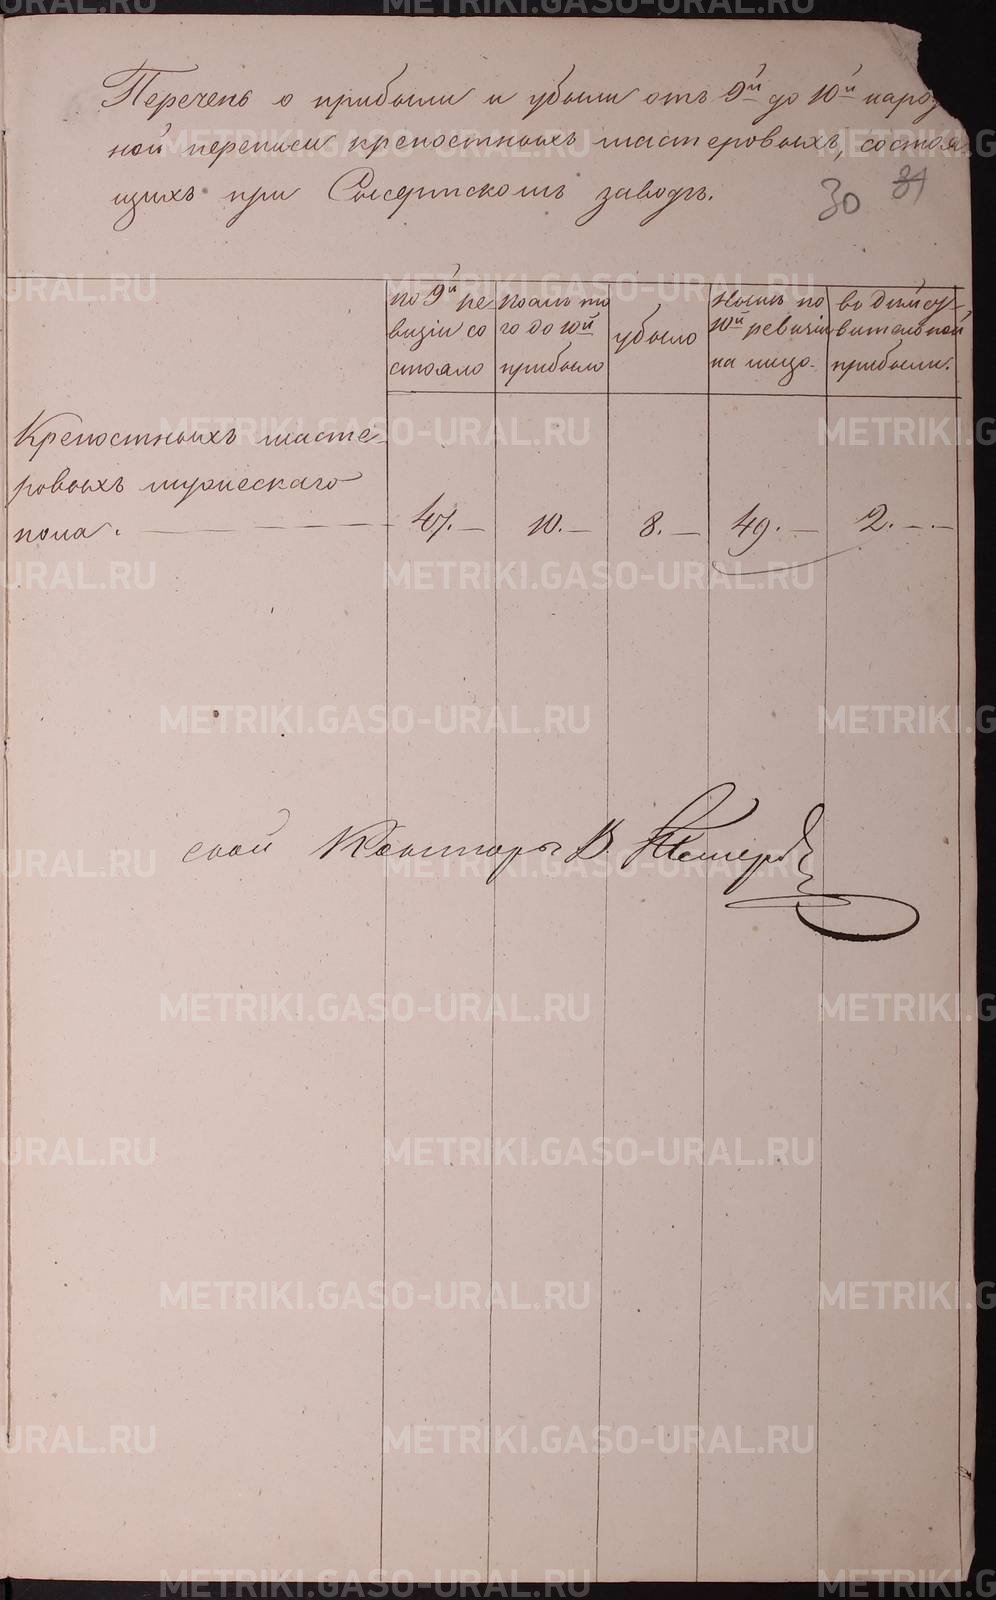 Перечень о прибыли и убыли отъ 9й до 10й народ
ной переписи крепостныхъ мастеровыхъ, состоя
щихъ при Сысертскомъ заводѣ.
30 31
по 9й ре
визіи со
стояло
после то
го до 10й
прибыло
убыло
Ныне по
10й ревизіи
на лицо.
въ действ
вительной
прибыли.
Крепостныхъ масте
ровыхъ мужескаго
пола.
47. 10. 8. 49. 2.
ской Конторы В.
METRIKI.GASO-URAL.RU